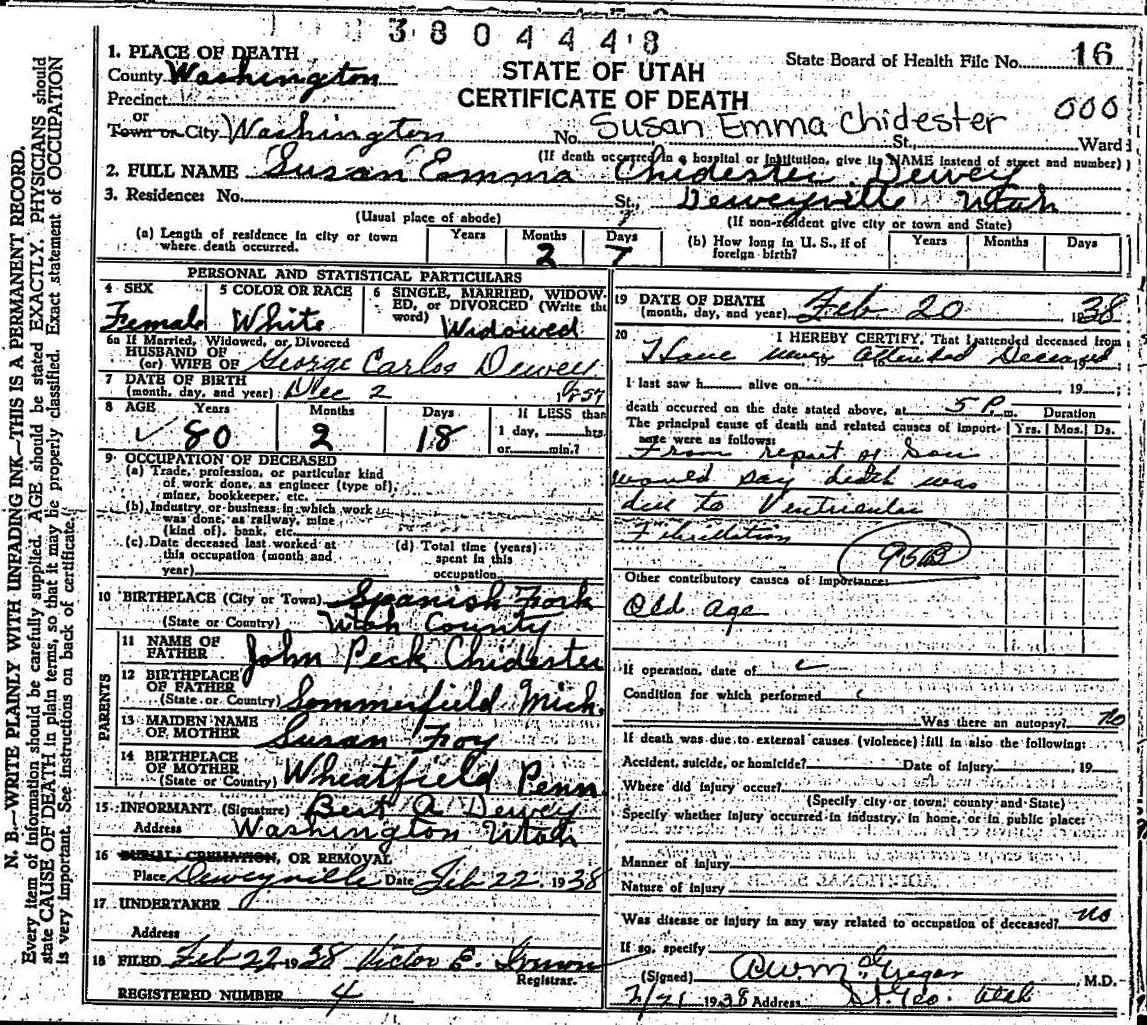 3804448
1. PLACE OF DEATH
County Washington
Precinct
or
Town or City Washington No. Susan Emma Chidester St., Ward
STATE OF UTAH
CERTIFICATE OF DEATH
State Board of Health File No. 16
000
(If death occurred in a hospital or institution, give its NAME instead of street and number)
2. FULL NAME Susan Emma Chidester Dewey
3. Residence: No. St., Deweyville Utah
(Usual place of abode) (If non-resident give city or town and State)
(a) Length of residence in city or town where death occurred. Years Months 2 Days 7
(b) How long in U. S., if of foreign birth? Years Months Days
PERSONAL AND STATISTICAL PARTICULARS
4 SEX Female
5 COLOR OR RACE White
6 SINGLE, MARRIED, WIDOWED, or DIVORCED (Write the word) Widowed
6a If Married, Widowed, or Divorced
HUSBAND OF
(or) WIFE OF George Carlos Dewey
7 DATE OF BIRTH
(month, day, and year) Dec 2 1857
8 AGE Years 80 Months 2 Days 18 If LESS than 1 day, hrs. or min.?
9. OCCUPATION OF DECEASED
(a) Trade, profession, or particular kind
of work done, as engineer (type of),
miner, bookkeeper, etc.
(b) Industry or business in which work
was done, as railway, mine
(kind of), bank, etc.
(c) Date deceased last worked at
this occupation (month and
year)
(d) Total time (years)
spent in this
occupation
10 BIRTHPLACE (City or Town) Spanish Fork
(State or Country) Utah County
PARENTS
11 NAME OF FATHER John Peck Chidester
12 BIRTHPLACE OF FATHER
(State or Country) Sommerfield Mich.
13 MAIDEN NAME OF MOTHER Susan Foy
14 BIRTHPLACE OF MOTHER
(State or Country) Wheatfield Penn
15 INFORMANT (Signature) Bert A Dewey
Address Washington Utah
16 BURIAL, CREMATION, OR REMOVAL
Place Deweyville Date Feb 22 1938
17 UNDERTAKER
Address
18 FILED Feb 22 1938 Victor E. Iverson
Registrar.
REGISTERED NUMBER 4
19 DATE OF DEATH
(month, day, and year) Feb 20 1938
20 I HEREBY CERTIFY, That I attended deceased from
Have never attended Deceased
, 19 to , 19 ;
I last saw h alive on 19 ;
death occurred on the date stated above, at 5 P. m. Duration
The principal cause of death and related causes of importance were as follows: Yrs. Mos. Ds.
From report of Son
would say death was
due to Ventricular
Fibrillation
95B
Other contributory causes of importance:
Old age
If operation, date of
Condition for which performed
Was there an autopsy? no
If death was due to external causes (violence) fill in also the following:
Accident, suicide, or homicide? Date of injury , 19
Where did injury occur?
(Specify city or town, county and State)
Specify whether injury occurred in industry, in home, or in public place:
Manner of injury
Nature of injury
Was disease or injury in any way related to occupation of deceased? no
If so, specify
(Signed) A W McGregor , M.D.
2/21 1938 Address St. Geo. Utah
N. B.—WRITE PLAINLY WITH UNFADING INK—THIS IS A PERMANENT RECORD.
Every item of information should be carefully supplied. AGE should be stated EXACTLY. PHYSICIANS should
state CAUSE OF DEATH in plain terms, so that it may be properly classified. Exact statement of OCCUPATION
is very important. See instructions on back of certificate.